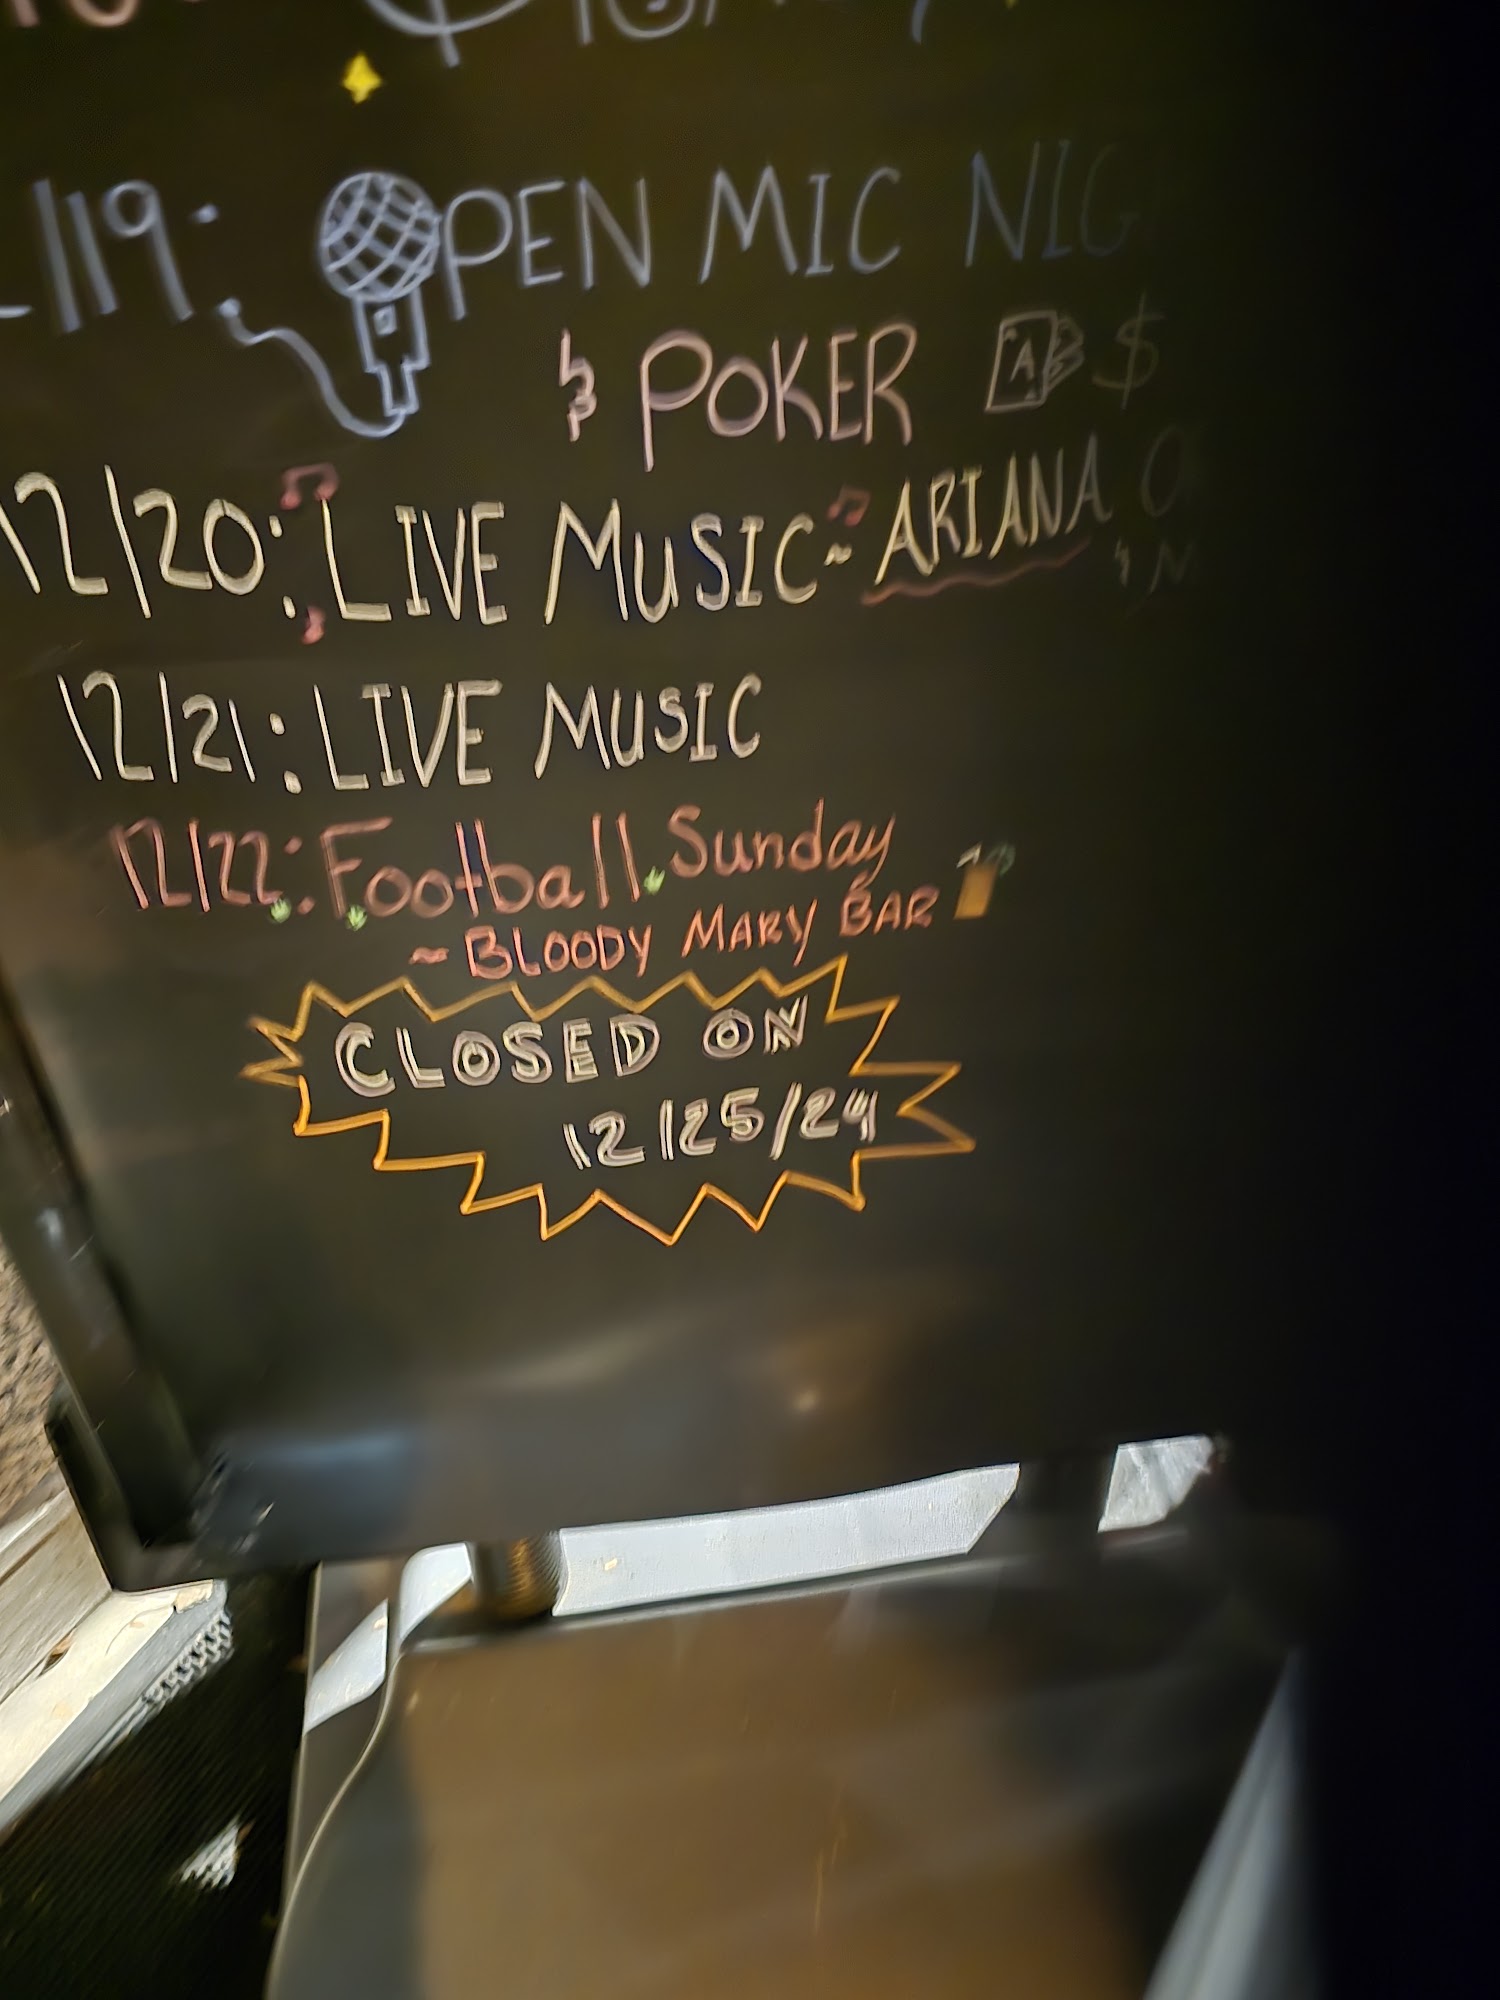 /19: OPEN MIC NIG
& POKER A $
12/20: LIVE MUSIC ~ ARIANA
12/21: LIVE MUSIC
12/22: Football Sunday
~ BLOODY MARY BAR
CLOSED ON
12/25/24